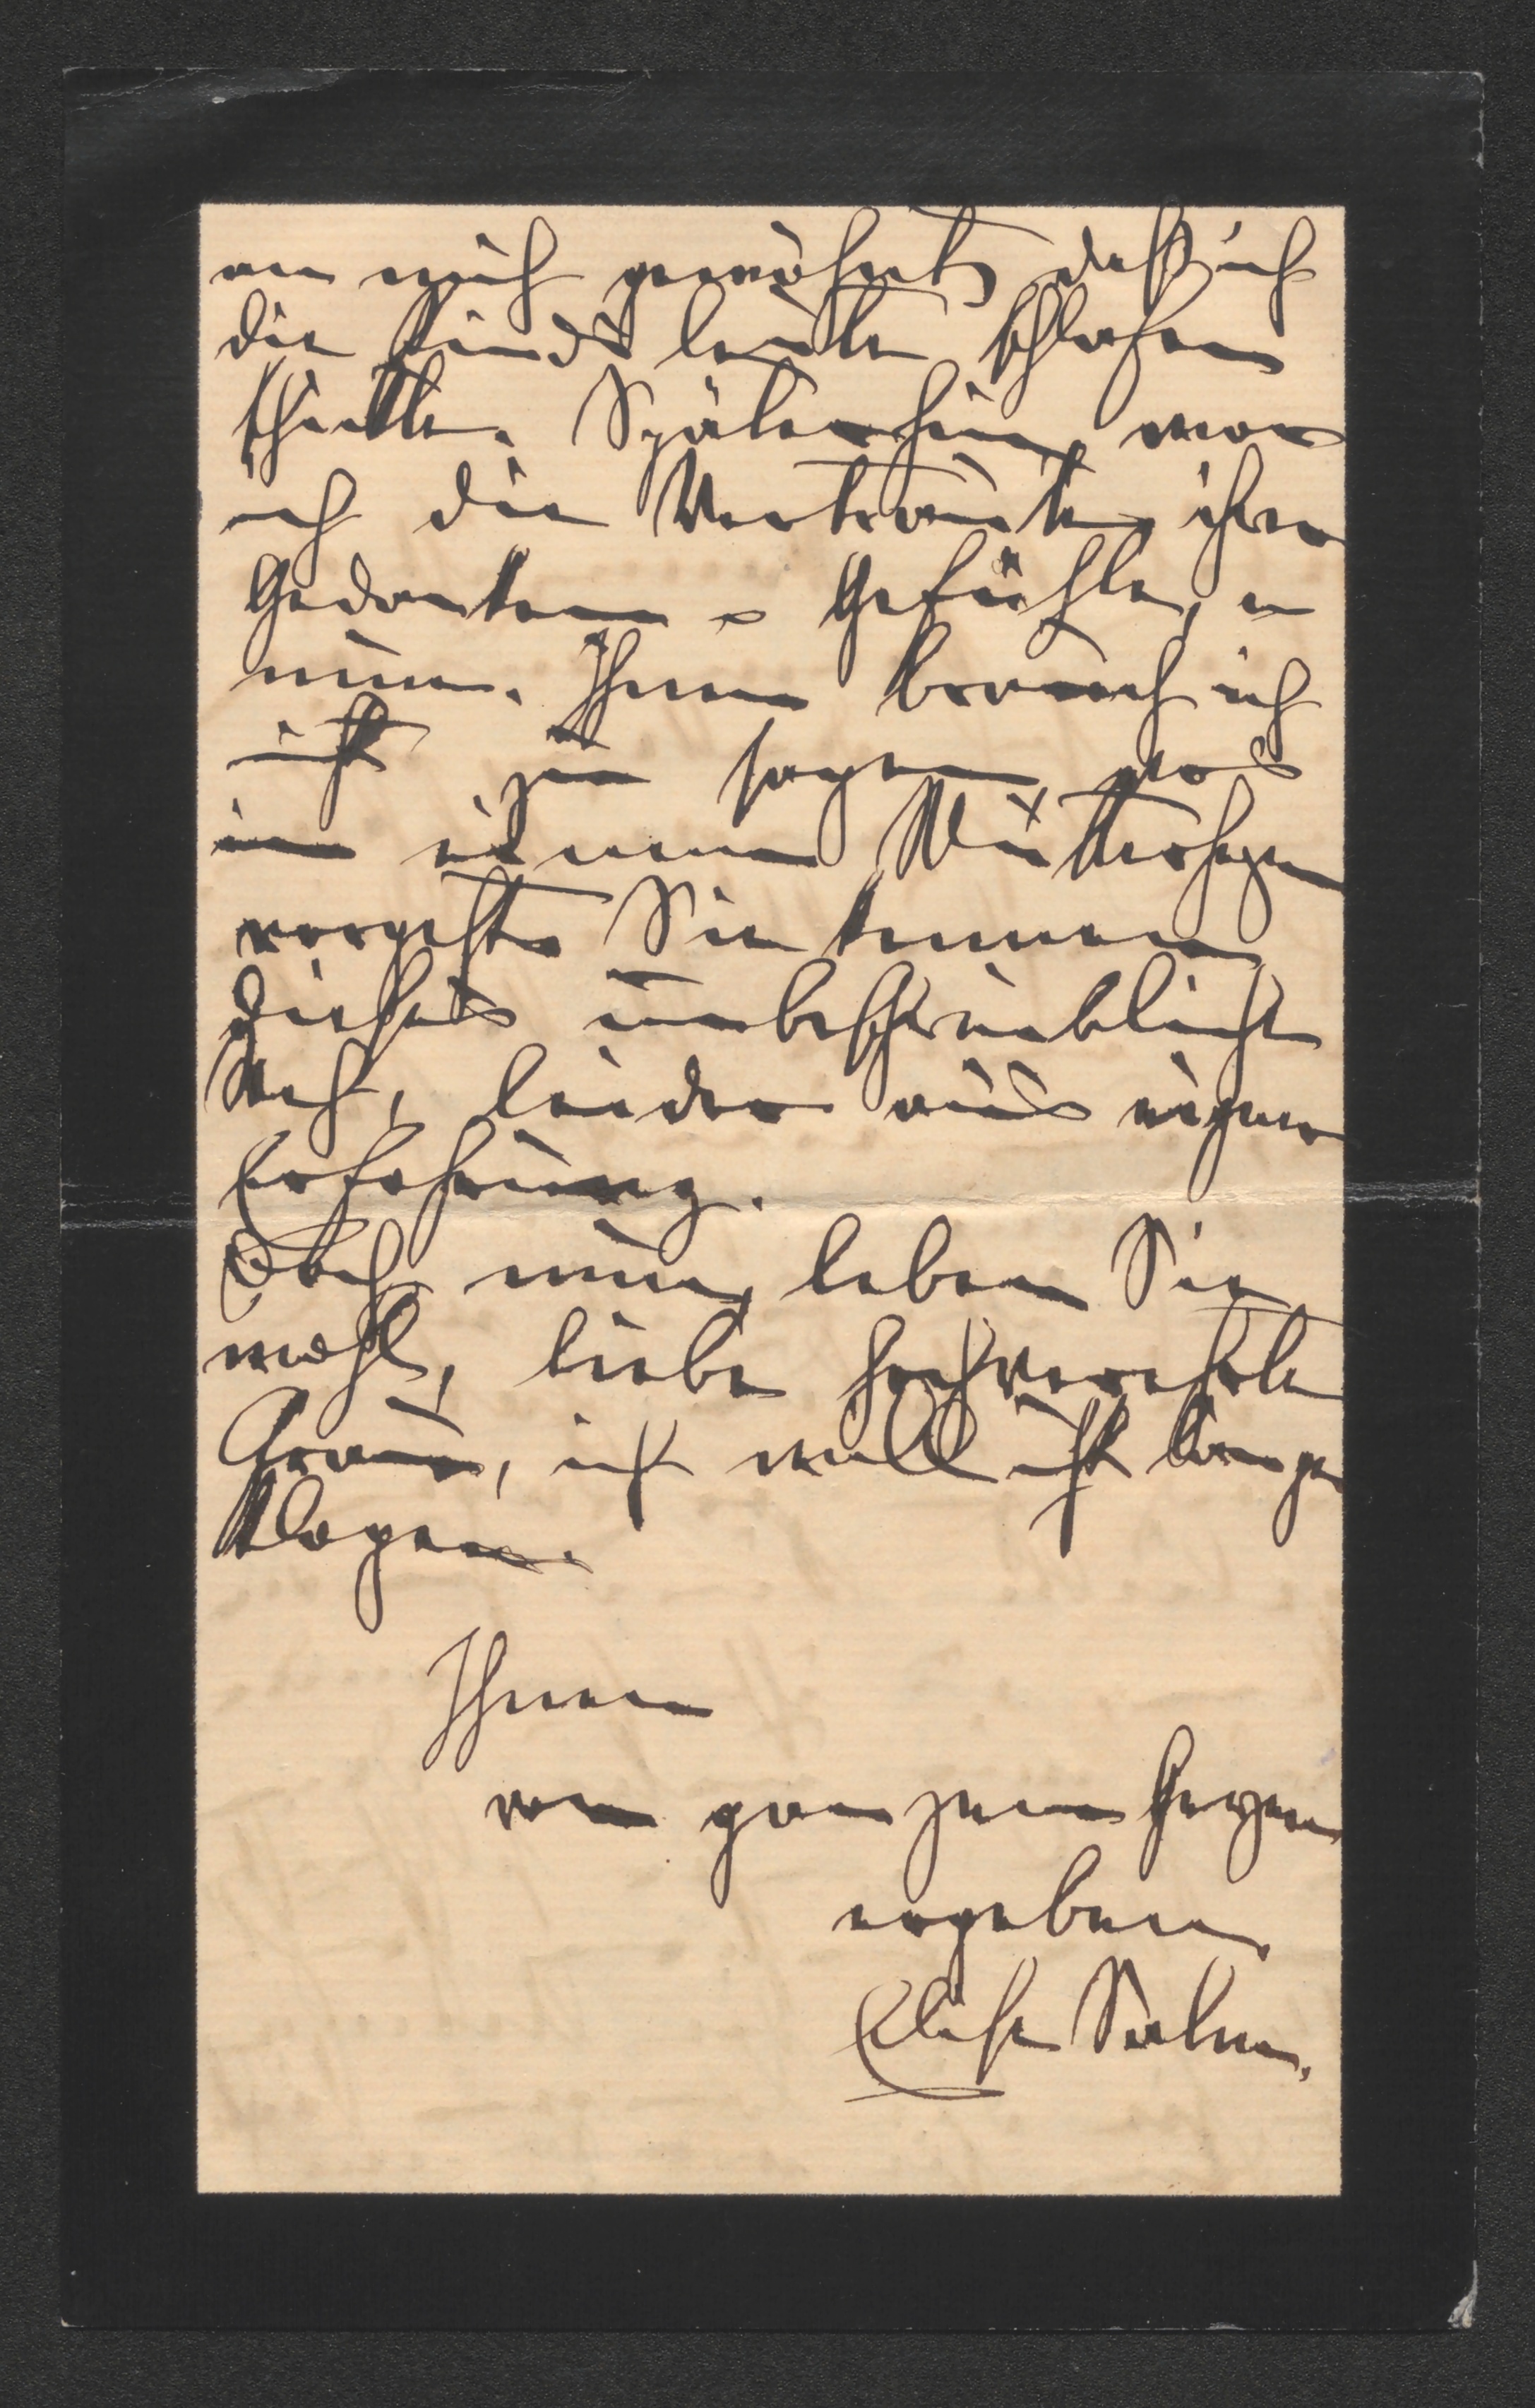 an mich gewöhnt, daß ich
die Kindsleute schlafen
schickte. Späterhin, war
ich die Vertraute, ihrer
Gedanken u Gefühle, u
nun. Ihnen brauch ich
nicht zu sagen, was
in einem Mutterherzen
vorgeht. Sie kennen
dieses unbeschreibliche
Weh, leider aus eigener
Erfahrung.
Doch nun, leben Sie
wohl, liebe hochverehrte
Frau, ich will nicht länger
klagen.
Ihnen
von ganzem Herzen
ergeben.
Elise